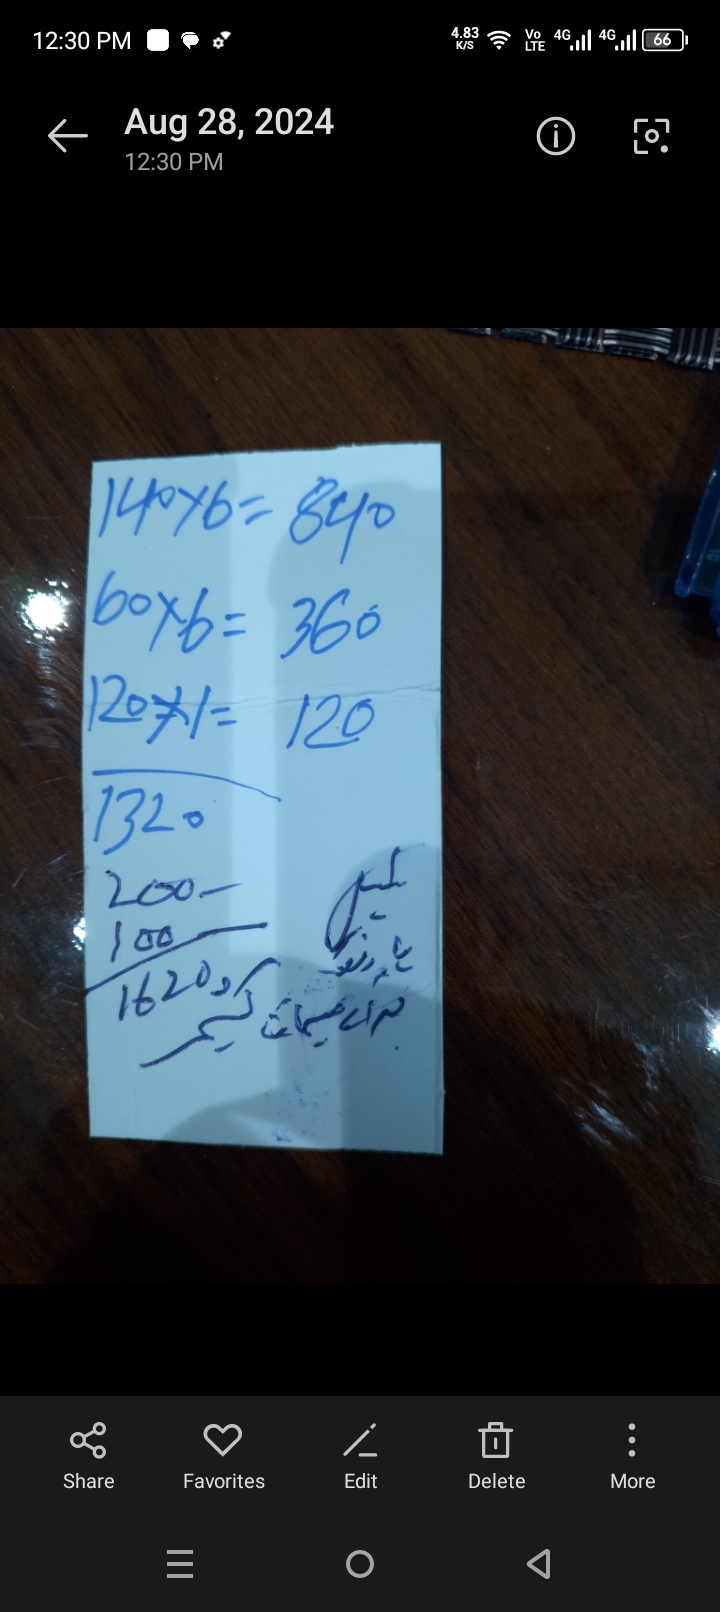 12:30 PM 4.83 K/S Vo LTE 4G 4G 66
Aug 28, 2024
12:30 PM
140x6= 840
60x6= 360
120x1= 120
1320
200
100
1620
Share Favorites Edit Delete More